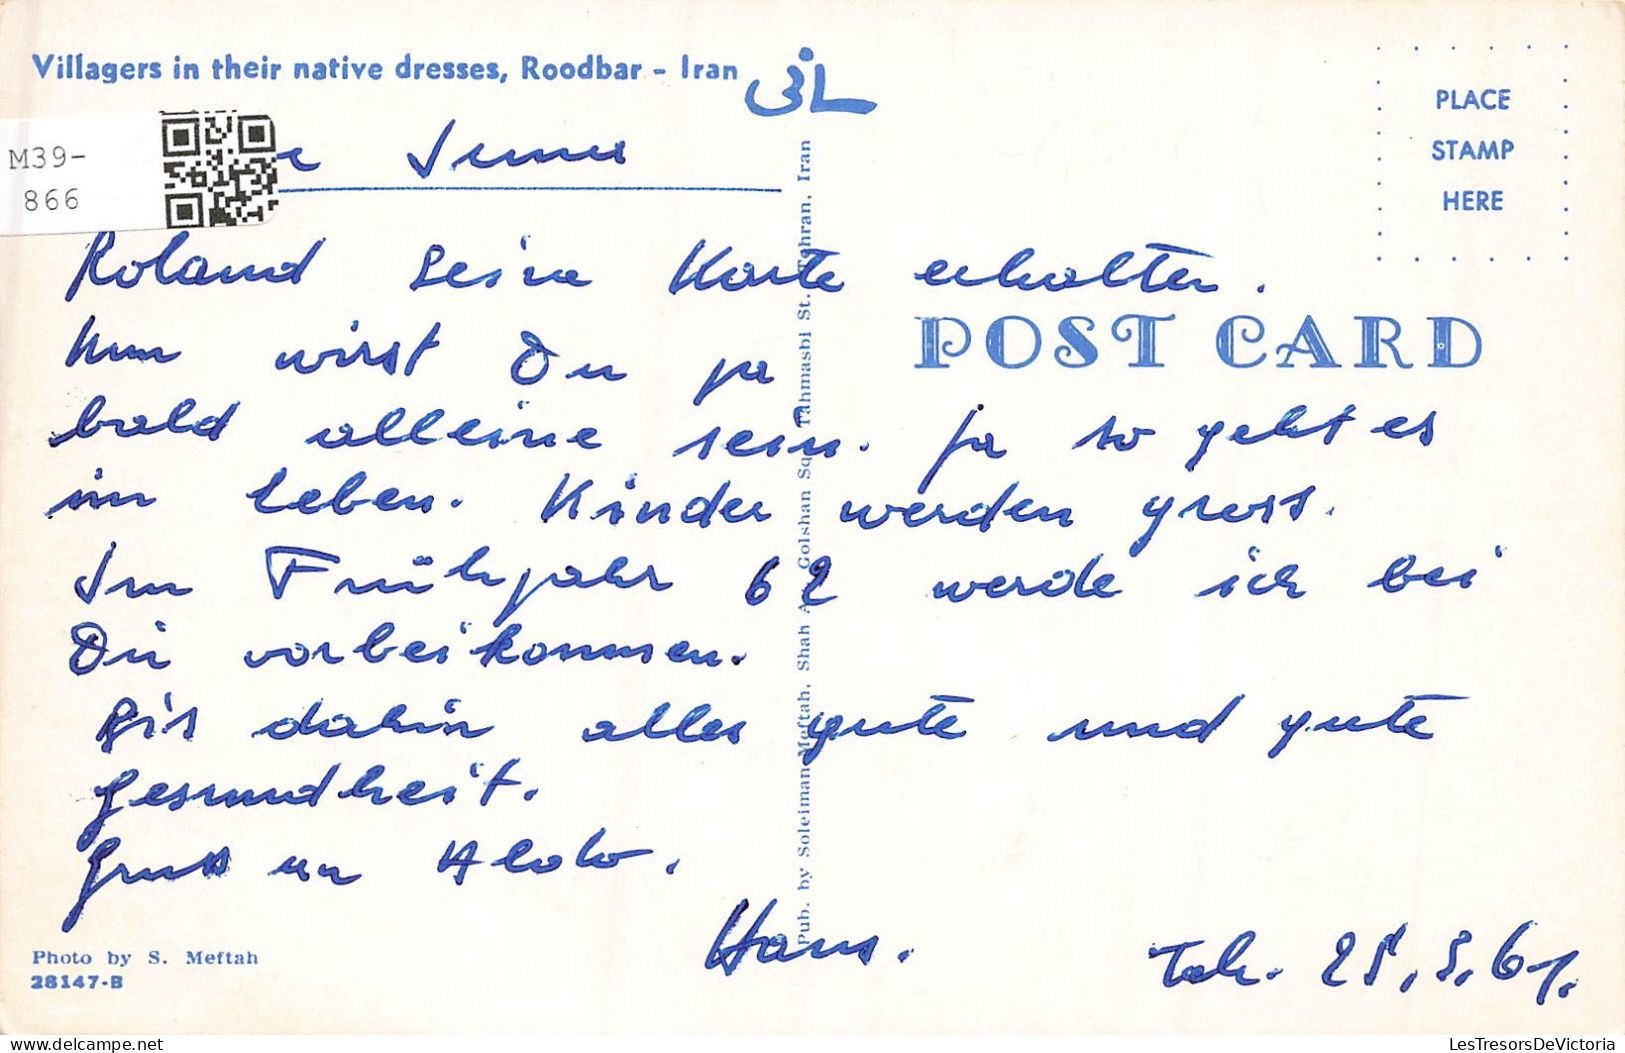 Villagers in their native dresses, Roodbar - Iran
PLACE
STAMP
HERE
M39-
866
Roland seine Karte erhalten.
Nun wirst Du ja
bald alleine sein. Ja so geht es
im Leben. Kinder werden gross.
Im Frühjahr 62 werde ich bei
Dir vorbeikommen.
Bis dahin alles gute und gute
Gesundheit.
Gruss an
Hans.
Teh. 61.
POST CARD
Pub. by Soleiman Meftah, Shah A Golshan Sq. Tahmasbi St. Tehran, Iran
Photo by S. Meftah
28147-B
LesTresorsDeVictoria